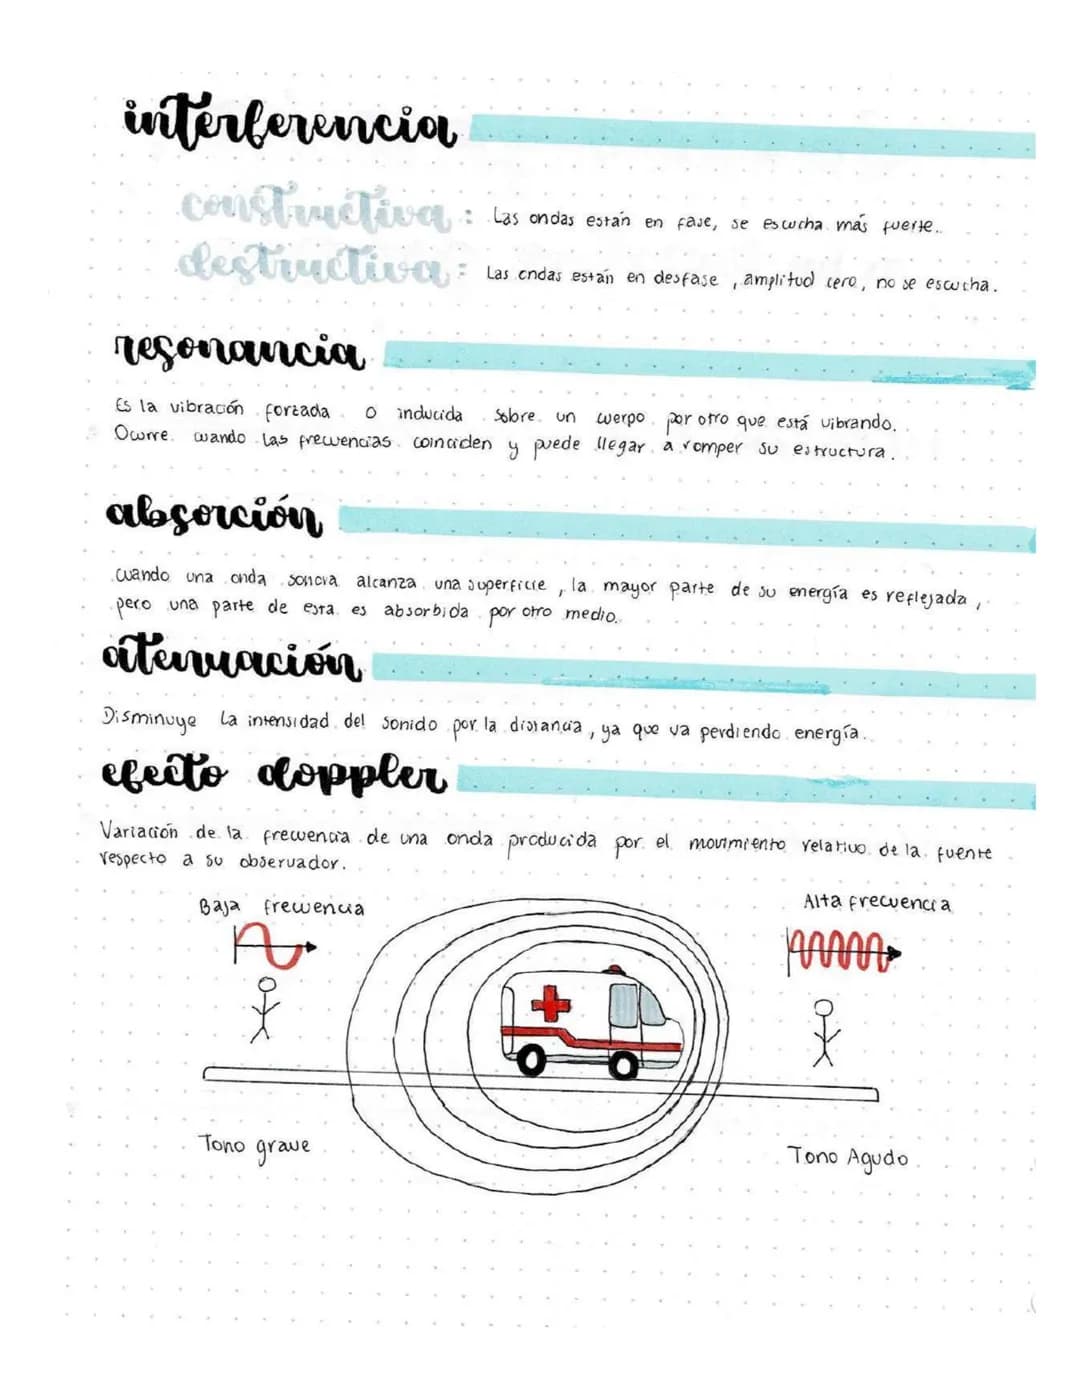 interferencia
constructiva : Las ondas están en fase, se escucha más fuerte.
destructiva : Las ondas están en desfase, amplitud cero, no se escucha.
resonancia
Es la vibración forzada o inducida sobre un cuerpo por otro que está vibrando.
Ocurre cuando las frecuencias coinciden y puede llegar a romper su estructura.
absorción
cuando una onda sonora alcanza una superficie, la mayor parte de su energía es reflejada,
pero una parte de esta es absorbida por otro medio.
atenuación
Disminuye la intensidad del sonido por la distancia, ya que va perdiendo energía.
efecto doppler
Variación de la frecuencia de una onda producida por el movimiento relativo de la fuente
respecto a su observador.
Baja frecuencia
Alta frecuencia
Tono grave
Tono Agudo